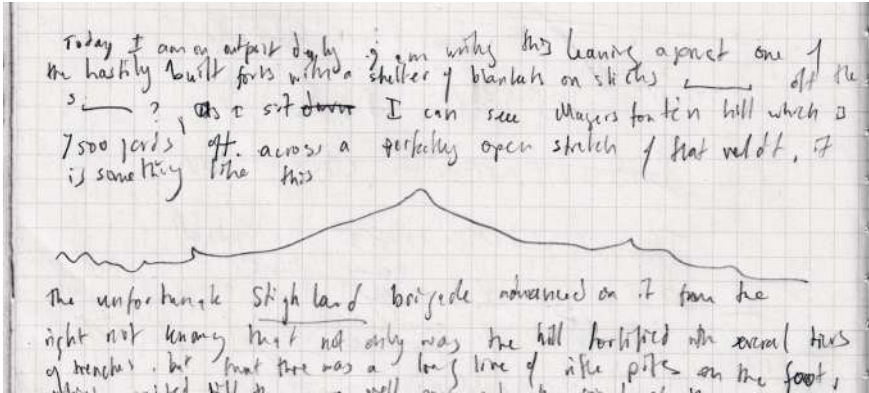 Today I am on outpost duty & am writing this leaning against one of
the hastily built forts with a shelter of blankets on sticks ____ off the
s____ ? As I sit down I can see Magersfontein hill which is
7500 yards off. across a perfectly open stretch of flat veldt, it
is something like this
The unfortunate Stighland brigade advanced on it from the
right not knowing that not only was the hill fortified with several tiers
of trenches, but that there was a long line of rifle pits on the foot,